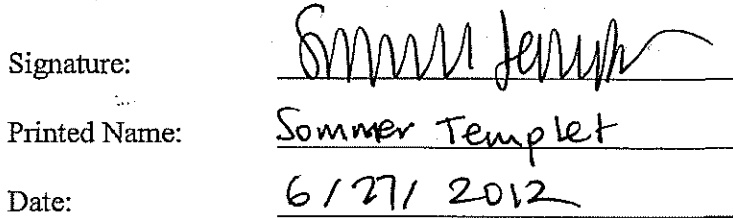 Signature: Sommer Templet
Printed Name: Sommer Templet
Date: 6/27/2012